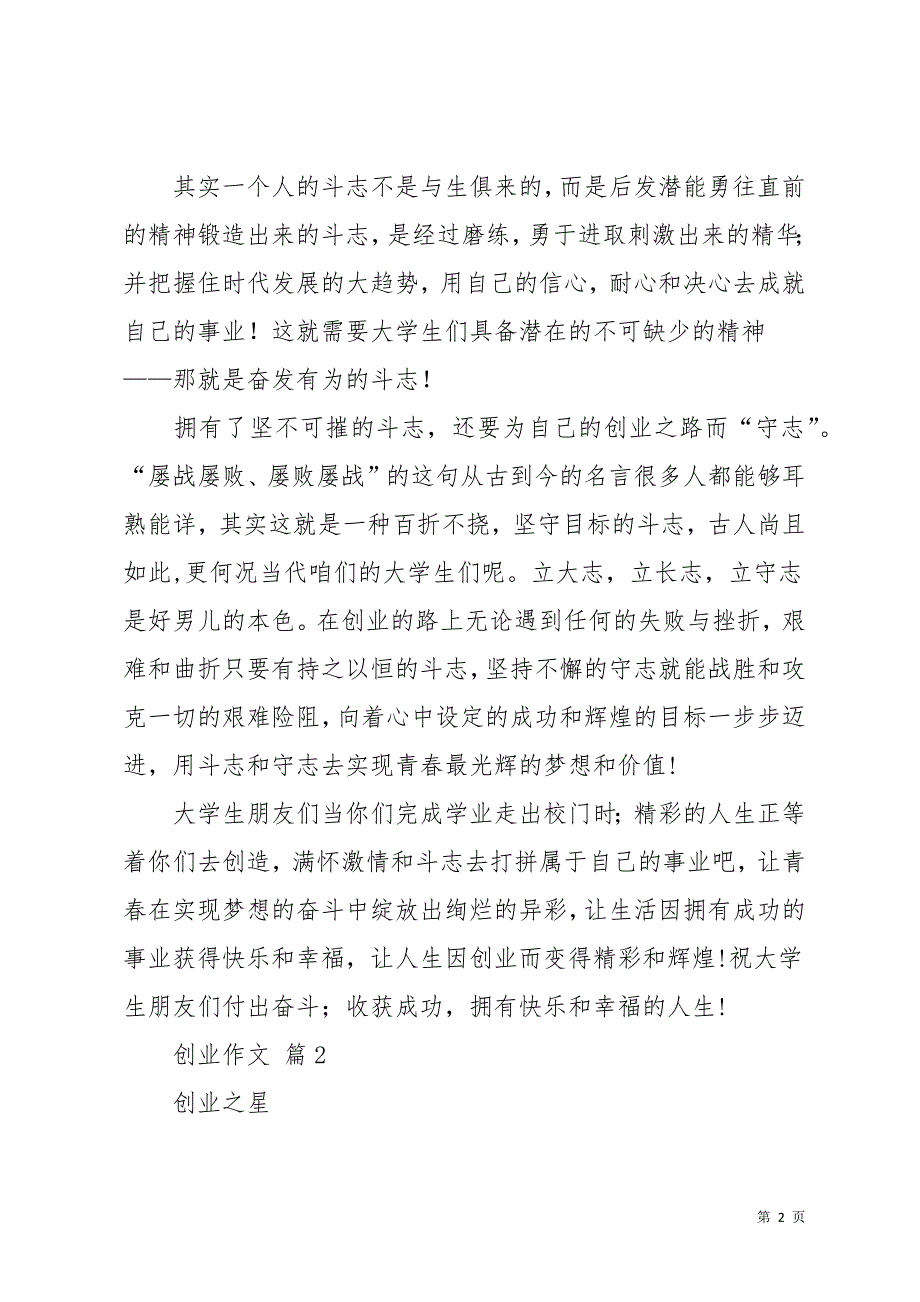 其实一个人的斗志不是与生俱来的，而是后发潜能勇往直前
的精神锻造出来的斗志，是经过磨练，勇于进取刺激出来的精华；
并把握住时代发展的大趋势，用自己的信心，耐心和决心去成就
自己的事业！这就需要大学生们具备潜在的不可缺少的精神
——那就是奋发有为的斗志！
拥有了坚不可摧的斗志，还要为自己的创业之路而“守志”。
“屡战屡败、屡败屡战”的这句从古到今的名言很多人都能够耳
熟能详，其实这就是一种百折不挠，坚守目标的斗志，古人尚且
如此,更何况当代咱们的大学生们呢。立大志，立长志，立守志
是好男儿的本色。在创业的路上无论遇到任何的失败与挫折，艰
难和曲折只要有持之以恒的斗志，坚持不懈的守志就能战胜和攻
克一切的艰难险阻，向着心中设定的成功和辉煌的目标一步步迈
进，用斗志和守志去实现青春最光辉的梦想和价值!
大学生朋友们当你们完成学业走出校门时；精彩的人生正等
着你们去创造，满怀激情和斗志去打拼属于自己的事业吧，让青
春在实现梦想的奋斗中绽放出绚烂的异彩，让生活因拥有成功的
事业获得快乐和幸福，让人生因创业而变得精彩和辉煌!祝大学
生朋友们付出奋斗；收获成功，拥有快乐和幸福的人生!
创业作文 篇2
创业之星
第 2 页